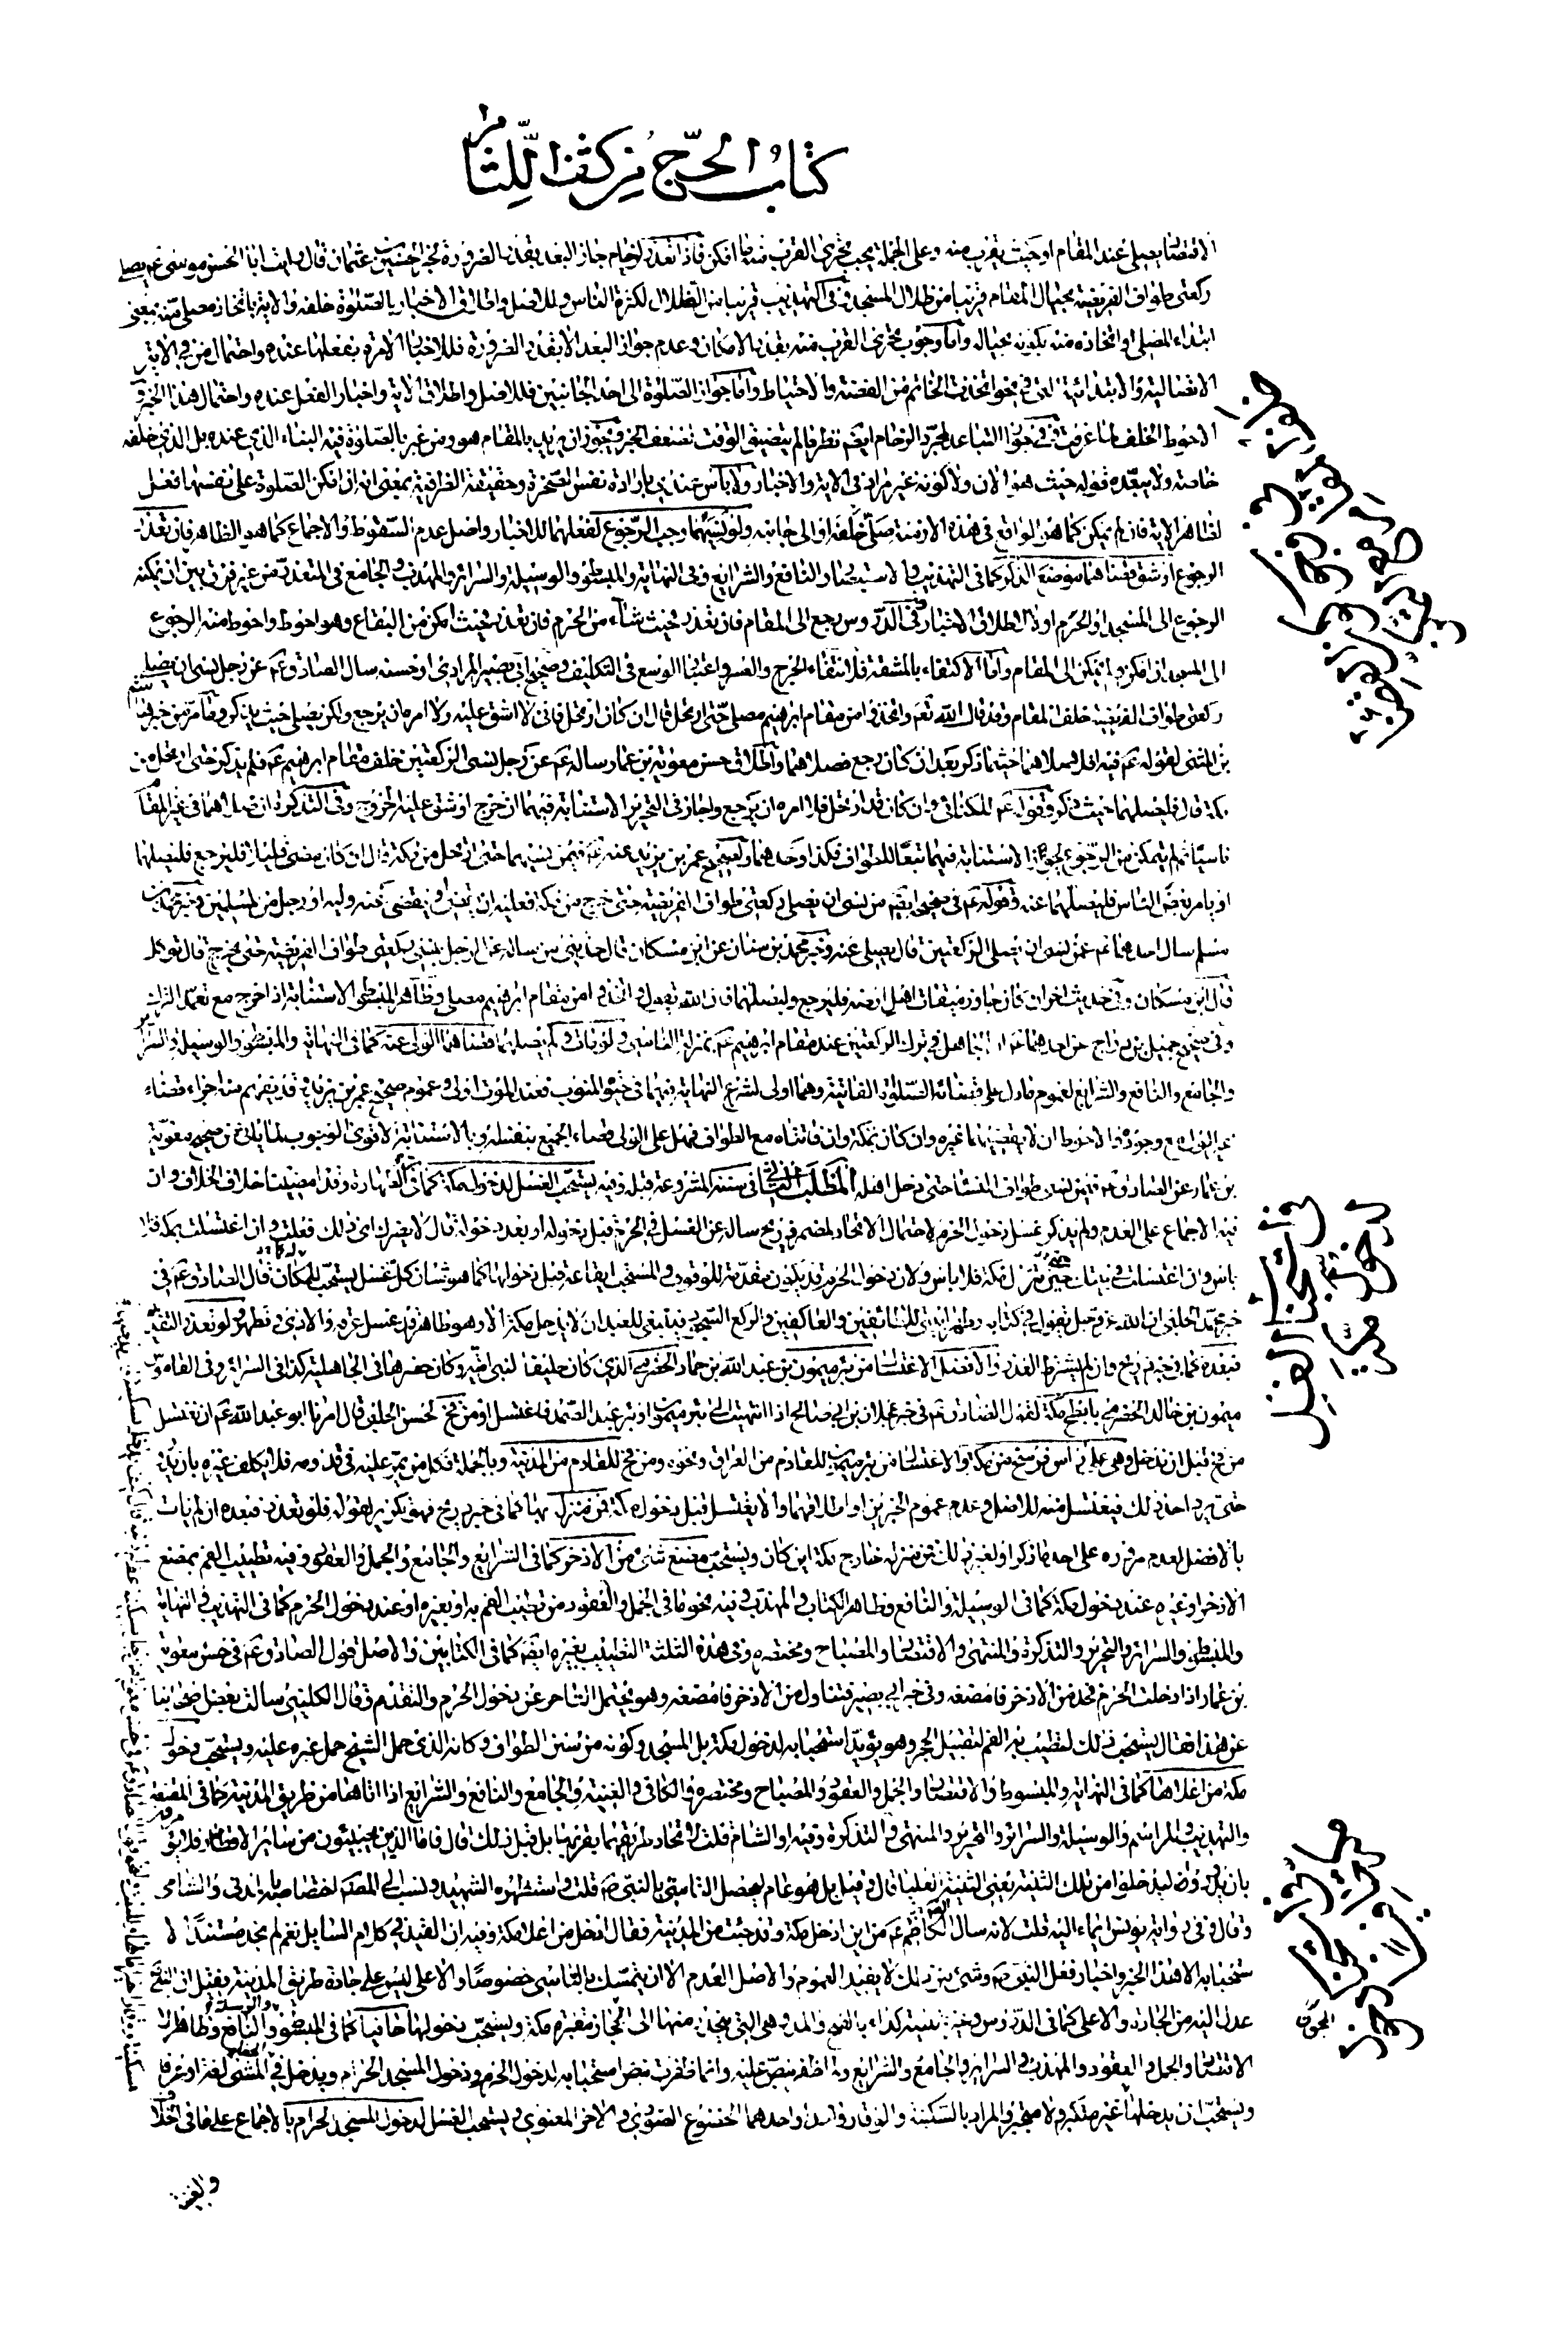 كتاب الحج من كشف اللثام
الاقتصاد يصلي عند المقام او حيث يقرب منه وعلى الجملة يجب تحري القرب منه ما امكن فاذا تعذر لزحام جاز البعد بقدر الضرورة لخبر الحسين بن عثمان قال رايت ابا الحسن موسى ع يصلي
ركعتي طواف الفريضة بحيال المقام قريبا من ظلال المسجد وفي التهذيب قريبا من الظلال لكثرة الناس وللاصل واطلاق الاخبار بالصلوة خلفه والاية باتخاذ مصلى منه بمعنى
ابتداء المصلى او اتخاذه منه بكونه بحياله واما وجوب تحري القرب منه بقدر الامكان وعدم جواز البعد الا بقدر الضرورة فللاخبار الامرة بفعلها عنده واحتمال من في الاية
الاتصالية والابتدائية التي في نحو اتخذت الخاتم من الفضة والاحتياط واما جواز الصلوة الى احد الجانبين فللاصل واطلاق الاية واخبار الفعل عنده واحتمال هذا الخبر و
الاحوط الخلف لما عرفت وفي جواز التباعد لمجرد الزحام ايضا نظر ما لم يتضيق الوقت لضعف الخبر ويجوز ان يريد بالمقام هو ومن غير بالصلوة فيه البناء الذي عنده بل الذي خلفه
خاصة ولا يبعده قوله حيث هو الان ولا كونه غير مراد في الاية والاخبار ولا باس عندي بارادة نفس الصخرة وحقيقة الظرفية بمعنى انه ان امكن الصلوة على نفسها فعل
لظاهر الاية فان لم يمكن كما هو الواقع في هذه الازمنة صلى خلفه او الى جانبه ولو نسيهما وجب الرجوع لفعلهما للاخبار واصل عدم السقوط والاجماع كما هو الظاهر فان تعذر
الرجوع او شق قضاهما موضع الذكر كما في التهذيب والاستبصار والنافع والشرايع وفي النهاية والمبسوط والوسيلة والسرائر والمهذب والجامع في المتعذر من غير فرق بين ان يمكنه
الرجوع الى المسجد او الحرم او لا لاطلاق الاخبار وفي الدروس رجع الى المقام فان تعذر فحيث شاء من الحرم فان تعذر فحيث امكن من البقاع وهو احوط واحوط منه الرجوع
الى المسجد ان امكن ولم يمكن الى المقام واما الاكتفاء بالمشقة فلانتفاء الحرج والعسر واعتبار الوسع في التكليف وصحيح ابي بصير المرادي او حسنه سال الصادق ع عن رجل نسي ان يصلي
ركعتي طواف الفريضة خلف المقام وقد قال الله تع واتخذوا من مقام ابرهيم مصلى حتى ارتحل فقال ان كان ارتحل فاني لا اشق عليه ولا امره ان يرجع ولكن يصلي حيث يذكر وما مر من خبر
بن المثنى لقوله ع فيه افلا صلاهما حيثما ذكر بعد ان كان رجع فصلاهما واطلاق حسن معوية بن عمار ساله ع عن رجل نسي الركعتين خلف مقام ابرهيم ع فلم يذكر حتى ارتحل من
مكة قال فليصلهما حيث ذكر وقوله ع للكناني وان كان قد ارتحل فلا امره ان يرجع واجاز في التحرير الاستنابة فيهما ان خرج وشق عليه الرجوع وفي التذكرة ان صلاهما في غير المقام
ناسيا ثم لم يتمكن من الرجوع لجواز الاستنابة فيهما تبعا للطواف فكذا وحدهما ولصحيح عمر بن يزيد عنه ع فيمن نسيهما حتى ارتحل من مكة قال ان كان مضى قليلا فليرجع فليصلهما
او يامر بعض الناس فليصلهما عنه وقوله ع في صحيحه ايضا من نسي ان يصلي ركعتي طواف الفريضة حتى خرج من مكة فعليه ان يقضي او يقضي عنه وليه او رجل من المسلمين وخبر محمد بن
مسلم سال احدهما ع عمن نسي ان يصلي الركعتين قال يصلى عنه وخبر محمد بن سنان عن ابن مسكان قال حدثني من ساله عن الرجل ينسى ركعتي طواف الفريضة حتى يخرج قال يوكل
قال ابن مسكان وفي حديث اخر ان كان جاوز ميقات اهل ارضه فليرجع وليصلهما فان الله يقول واتخذوا من مقام ابرهيم مصلى وظاهر المبسوط الاستنابة اذا خرج مع تعمد الترك
وفي صحيح جميل بن دراج عن احدهما ع ان الجاهل في ترك الركعتين عند مقام ابرهيم ع بمنزلة الناسي ولو مات ولم يصلهما قضاهما الولي عنه كما في النهاية والمبسوط والوسيلة والسرائر
والجامع والنافع والشرايع لعموم ما دل على قضائه الصلوة الفائتة وهما اولى لشرع النيابة فيهما في حيوة المنوب فعند الموت اولى وعموم صحيح عمر بن يزيد بل قد يفهم منه اجزاء قضاء
غير الولي مع وجوده والاحوط ان لا يقضيهما غيره وان كان بمكة وان فاتتاه مع الطواف فهل على الولي قضاء الجميع بنفسه او بالاستنابة الاقوى الوجوب لما ياتي من صحيح معوية
بن عمار عن الصادق ع فيمن نسي طواف النساء حتى دخل اهله المطلب الثاني في سننه المشروعة قبله وفيه يستحب الغسل لدخول مكة كما في الطهارة وقد مضيتا خلاف الخلاف وان
فيه الاجماع على العدم ولم يذكر غسل دخول الحرم لاحتمال الاتحاد لمضمر ذريح ساله عن الغسل في الحرم قبل دخوله او بعد دخوله قال لا يضرك اي ذلك فعلت وان اغتسلت بمكة فلا
باس وان اغتسلت في بيتك حين تنزل مكة فلا باس ولان دخول الحرم قد يكون مقدمة للوقوف والمستحب ايقاعه قبل دخولها كما هو شان كل غسل يستحب للمكان قال الصادق ع في
خبر محمد الحلبي ان الله عز وجل يقول في كتابه وطهر بيتي للطائفين والعاكفين والركع السجود فينبغي للعبد ان لا يدخل مكة الا وهو طاهر قد غسل عرقه والاذى وتطهر ولو تعذر التقديم
فبعده كما في خبر ذريح وان لم يشترط العذر والافضل الاغتسال من بئر ميمون بن عبد الله بن حماد الحضرمي الذي كان حليفا لبني امية وكان حفرها في الجاهلية كذا في السرائر وفي القاموس
ميمون بن خالد الحضرمي بابطح مكة لقول الصادق ع في خبر عجلان بن ابي صالح اذا انتهيت الى بئر ميمون او بئر عبد الصمد فاغتسل او من فخ لحسن الحلبي قال امرنا ابو عبد الله ع ان نغتسل
من فخ قبل ان ندخل وهي على راس فرسخ من مكة والاغتسال من بئر ميمون للقادم من العراق ونحوه ومن فخ للقادم من المدينة وبالجملة فكل من يمر عليه في قدومه فلا يكلف غيره بان يدور
حتى يرد احد ذلك فيغتسل منه للاصل وعدم عموم الخبرين او اطلاقهما والا يغتسل قبل دخوله مكة فمن منزله بها كما في خبر ذريح فهو تكرير لقوله فلو تعذر فبعده ان لم يات
بالافضل لعدم مروره على احد ما ذكر او لغير ذلك فمن منزله خارج مكة اين كان ويستحب مضغ شيء من الاذخر كما في الشرايع والجامع والجمل والعقود وفيه تطييب الفم بمضغ
الاذخر او غيره عند دخول مكة كما في الوسيلة والنافع وظاهر الكتاب والمهذب وفيه نحو ما في الجمل والعقود من تطييب الفم به او بغيره او عند دخول الحرم كما في التهذيب والنهاية
والمبسوط والسرائر والتحرير والتذكرة والمنتهى والاقتصاد والمصباح ومختصره وفي هذه الثلثة التطييب بغيره ايضا كما في الكتابين والاصل قول الصادق ع في حسن معوية
بن عمار اذا دخلت الحرم فخذ من الاذخر فامضغه وفي خبر ابي بصير فتناول من الاذخر فامضغه وهو يحتمل التاخر عن دخول الحرم والتقدم وقال الكليني سالت بعض اصحابنا
عن هذا فقال يستحب ذلك ليطيب به الفم لتقبيل الحجر وهو يؤيد استحبابه لدخول مكة بل المسجد وكونه من سنن الطواف وكانه الذي حمل الشيخ حمل غيره عليه ويستحب دخول
مكة من اعلاها كما في النهاية والمبسوط والاقتصاد والجمل والعقود والمصباح ومختصره والكافي والغنية والجامع والنافع والشرايع اذا اتاها من طريق المدينة كما في المقنعة
والتهذيب والمراسم والوسيلة والسرائر والتحرير والمنتهى والتذكرة وفيه او الشام قلت لاتحاد طريقهما بقربها بل قبل ذلك قال فاما الذين يجيئون من سائر الاقطار فلا يؤمرون
بان يدوروا ليدخلوا من تلك الثنية يعني الثنية العليا قال وقيل بل هو عام ليحصل التاسي بالنبي ص قلت واستظهره الشهيد ونسب الى المصنف اختصاصه بالمدني والشامي
وقال وفي رواية يونس ايماء اليه قلت لانه سال الكاظم ع من اين ادخل مكة وقد جئت من المدينة فقال ادخل من اعلا مكة وفيه ان القيد في كلام السايل نعم لم نجد مستندا لا
ستحبابه الا هذا الخبر واخبار فعل النبي ص وشيء من ذلك لا يفيد العموم والاصل العدم الا ان يتمسك بالتاسي خصوصا والاعلى ليس على جادة طريق المدينة فقيل ان النبي ص
عدل اليه من الجادة والاعلى كما في الدروس وغيره ثنية كداء بالفتح والمد وهي التي ينحدر منها الى الحجاز مقبرة مكة ويستحب دخولها حافيا كما في المبسوط والوسيلة والنافع وظاهر
الاقتصاد والجمل والعقود والمهذب والسرائر والجامع والشرايع ولم اظفر بنص عليه وانما ظفرت بنص استحبابه لدخول الحرم ودخول المسجد الحرام ويدخل في المشي لغة او عرفا
ويستحب ان يدخلها غير متكبر ولا متجبر والمراد بالسكينة والوقار واحد او احدهما الخشوع الصوري والاخر المعنوي ويستحب الغسل لدخول المسجد الحرام بالاجماع على ما في الخلاف
والغنية
في استحباب الغسل
لدخول مكة